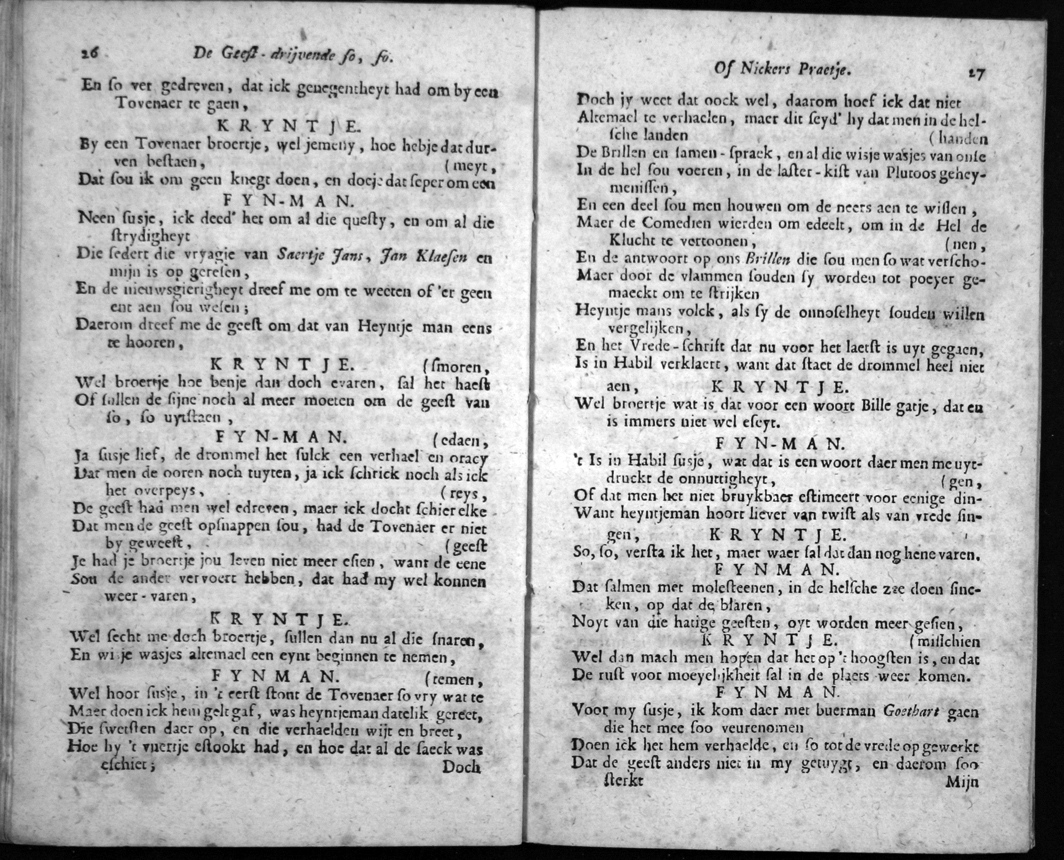 26 De Geest-drijvende so, so.
En so ver gedreven, dat ick genegentheyt had om by een
Tovenaer te gaen,
KRYNTJE.
By een Tovenaer broertje, wel jemeny, hoe hebje dat dur-
ven bestaen, (meyt,
Dat sou ik om geen knegt doen, en doeje dat seper om een
FYN-MAN.
Neen susje, ick deed' het om al die questy, en om al die
strydigheyt
Die sedert die vryagie van Saertje Jans, Jan Klaesen en
mijn is op geresen,
En de nieuwsgierigheyt dreef me om te weeten of 'er geen
ent aen sou wesen;
Daerom dreef me de geest om dat van Heyntje man eens
te hooren,
KRYNTJE. (smoren,
Wel broertje hoe benje dan doch evaren, sal het haest
Of sullen de sijne noch al meer moeten om de geest van
so, so uytstaen,
FYN-MAN. (edaen,
Ja susje lief, de drommel het sulck een verhael en oracy
Dat men de ooren noch tuyten, ja ick schrick noch als ick
het overpeys, (reys,
De geest had men wel edreven, maer ick docht schier elke
Dat men de geest opsnappen sou, had de Tovenaer er niet
by geweest, (geest
Je had je broertje jou leven niet meer esien, want de eene
Sou de ander vervoert hebben, dat had my wel konnen
weer-varen,
KRYNTJE.
Wel secht me doch broertje, sullen dan nu al die snaren,
En wisje wasjes altemael een eynt beginnen te nemen,
FYNMAN. (temen,
Wel hoor susje, in 't eerst stont de Tovenaer so vry wat te
Maer doen ick hem gelt gaf, was heyntjeman datelik gereet,
Die sweetsten daer op, en die verhaelden wijt en breet,
Hoe hy 't vuertje estookt had, en hoe dat al de saeck was
eschiet; Doch
Of Nickers Praetje. 27
Doch jy weet dat oock wel, daarom hoef ick dat niet
Altemael te verhaelen, maer dit seyd' hy dat men in de hel-
sche landen (handen
De Brillen en samen-spraek, en al die wisje wasjes van onse
In de hel sou voeren, in de laster-kist van Plutoos gehey-
menissen,
En een deel sou men houwen om de neers aen te wissen,
Maer de Comedien wierden om edeelt, om in de Hel de
Klucht te vertoonen, (nen,
En de antwoort op ons Brillen die sou men so wat verscho-
Maer door de vlammen souden sy worden tot poeyer ge-
maeckt om te strijken
Heyntje mans volck, als sy de onnoselheyt souden willen
vergelijken,
En het Vrede-schrift dat nu voor het laetst is uyt gegaen,
Is in Habil verklaert, want dat staet de drommel heel niet
aen, KRYNTJE.
Wel broertje wat is dat voor een woort Bille gatje, dat en
is immers niet wel eseyt.
FYN-MAN.
't Is in Habil susje, wat dat is een woort daer men me uyt-
druckt de onnuttigheyt, (gen,
Of dat men het niet bruykbaer estimeert voor eenige din-
Want heyntjeman hoort liever van twist als van vrede sin-
gen, KRYNTJE.
So, so, versta ik het, maer waer sal dat dan nog hene varen.
FYNMAN.
Dat salmen met molesteenen, in de helsche zee doen sinc-
ken, op dat de blaren,
Noyt van die hatige geesten, oyt worden meer gesien,
KRYNTJE. (misschien
Wel dan mach men hopen dat het op 't hoogsten is, en dat
De rust voor moeyelijkheit sal in de plaets weer komen.
FYNMAN.
Voor my susje, ik kom daer met buerman Goethart gaen
die het mee soo veurenomen
Doen ick het hem verhaelde, en so tot de vrede op gewerkt
Dat de geest anders niet in my getuygt, en daerom soo
sterkt Mijn